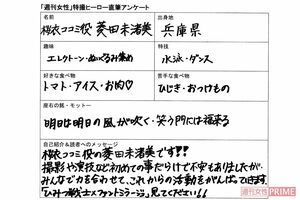 「週刊女性」特撮ヒーロー直筆アンケート
名前
桜衣ココミ役 菱田未渚美
出身地
兵庫県
趣味
エレクトーン・ぬいぐるみ集め
特技
水泳・ダンス
好きな食べ物
トマト・アイス・お肉♡
苦手な食べ物
ひじき・おつけもの
座右の銘・モットー
明日は明日の風が吹く・笑う門には福来る
自己紹介&読者へのメッセージ
桜衣ココミ役の菱田未渚美です!!
撮影や実技など初めての事だらけで不安もありましたが、
みんなで力を合わせて、これからの活動もがんばって行きます。
「ひみつ戦士×ファントミラージュ」見てください!!
週刊女性PRIME